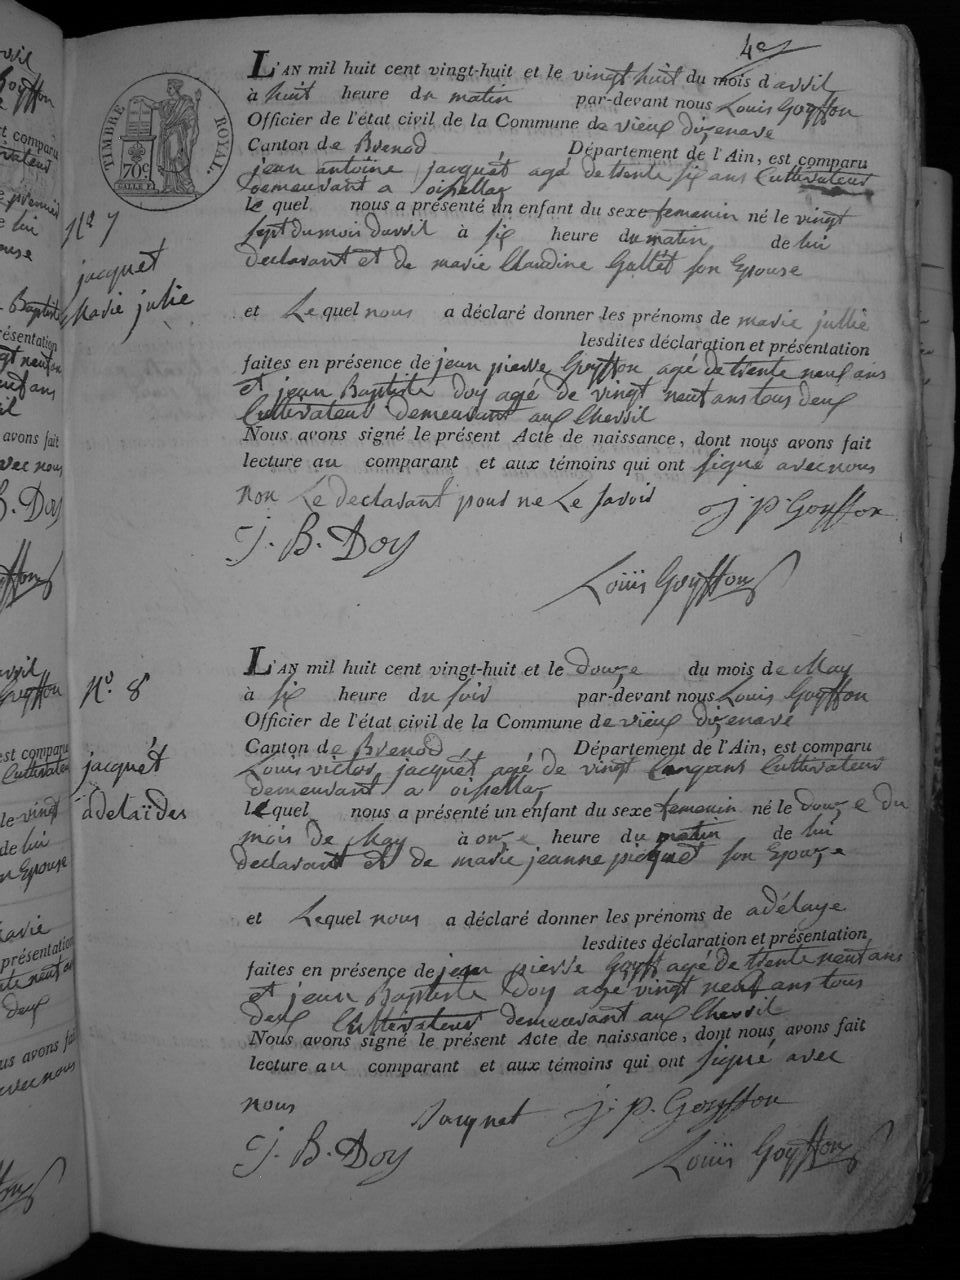 4e
TIMBRE ROYAL.
70c
L'AN mil huit cent vingt-huit et le vingt huit du mois d'avril
à huit heure du matin par-devant nous Louis Goyffon
Officier de l'état civil de la Commune de vieux dizenave
Canton de Brenod Département de l'Ain, est comparu
jean antoine jacquét agé de trente six ans Cultivateur
demeurant a oisellas
le quel nous a présenté un enfant du sexe femenin né le vingt
sept du mois d'avril à six heure du matin de lui
declarant et de marie Claudine Gallét son Epouse
et Le quel nous a déclaré donner les prénoms de marie jullie
lesdites déclaration et présentation
faites en présence de jean pierre Goyffon agé de trente neuf ans
et jean Baptiste Doy agé de vingt neuf ans tous deux
Cultivateur demeurant aux Chevril
Nous avons signé le présent Acte de naissance, dont nous avons fait
lecture au comparant et aux témoins qui ont signé avec nous
non Le declarant pour ne Le savoir
j. p. Goyffon
J. B. Doy
Louis Goyffon
No 7
jacquét
Marie julie
L'AN mil huit cent vingt-huit et le douze du mois de May
à six heure du soir par-devant nous Louis Goyffon
Officier de l'état civil de la Commune de vieux dizenave
Canton de Brenod Département de l'Ain, est comparu
Louis victor jacquét agé de vingt Cinq ans Cultivateur
demeurant a oisellas
lequel nous a présenté un enfant du sexe femenin né le douze du
mois de May à onze heure du matin de lui
declarant et de marie jeanne picquet son Epouze
et Lequel nous a déclaré donner les prénoms de adélaye
lesdites déclaration et présentation
faites en présence de jean pierre Goyff agé de trente neuf ans
et jean Baptiste Doy agé vingt neuf ans tous
deux Cultivateur demeurant aux Chevril
Nous avons signé le présent Acte de naissance, dont nous avons fait
lecture au comparant et aux témoins qui ont signé avec
nous
Jacquet
j. p. Goyffon
J. B. Doy
Louis Goyffon
No. 8
jacquét
adelaïdes